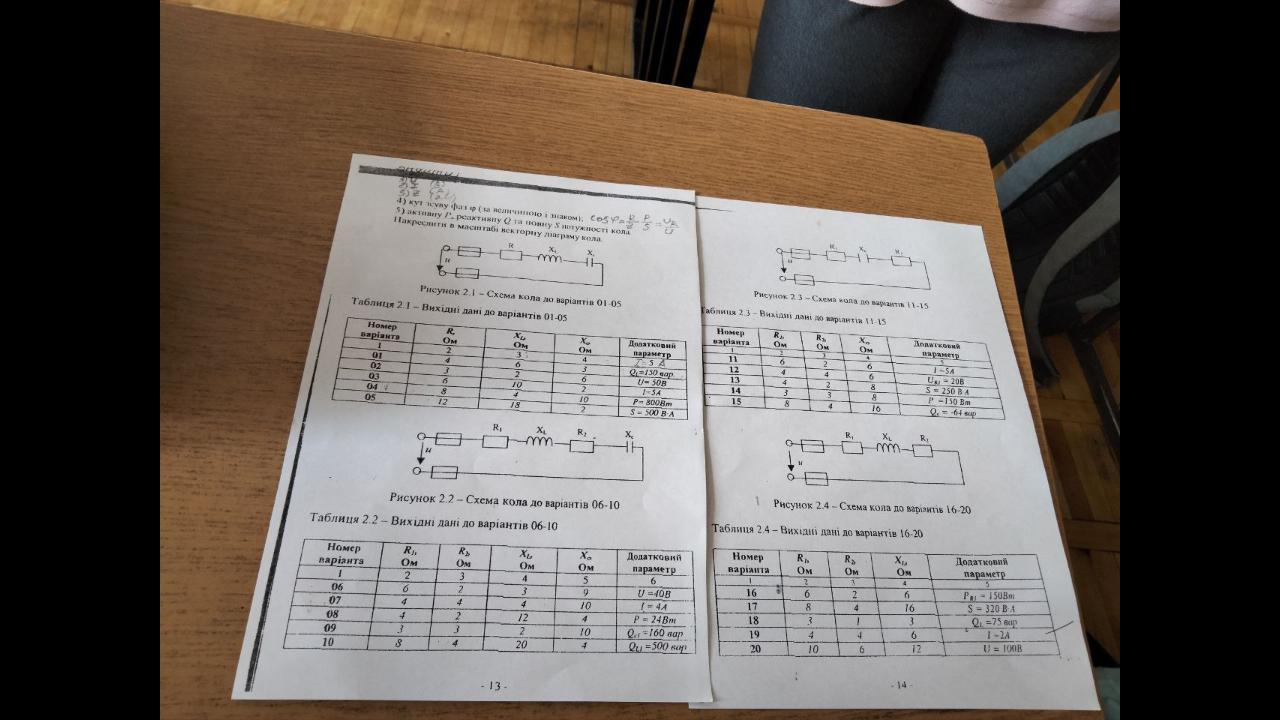 4) кут зсуву фаз φ (за величиною і знаком); cosφ = R/Z = P/S = U_R/U
5) активну P, реактивну Q та повну S потужності кола.
Накреслити в масштабі векторну діаграму кола.
R X_L X_c
u
Рисунок 2.1 – Схема кола до варіантів 01-05
Таблиця 2.1 – Вихідні дані до варіантів 01-05
Номер варіанта R, Ом X_L, Ом X_c, Ом Додатковий параметр
1 2 3 4
01 4 6 3 I = 5 А
02 3 2 6 Q_L=150 вар
03 6 10 2 U= 50В
04 8 4 10 I=5А
05 12 18 2 P= 800Вт
S = 500 В·А
R₁ X_L R₂ X_c
u
Рисунок 2.2 – Схема кола до варіантів 06-10
Таблиця 2.2 – Вихідні дані до варіантів 06-10
Номер варіанта R₁, Ом R₂, Ом X_L, Ом X_c, Ом Додатковий параметр
1 2 3 4 5 6
06 6 2 3 9 U =40В
07 4 4 4 10 I = 4А
08 4 2 12 4 P = 24Вт
09 3 3 2 10 Q_c1 =160 вар
10 8 4 20 4 Q_L1 =500 вар
- 13 -
R₁ X_c R₂
u
Рисунок 2.3 – Схема кола до варіантів 11-15
Таблиця 2.3 – Вихідні дані до варіантів 11-15
Номер варіанта R₁, Ом R₂, Ом X_c, Ом Додатковий параметр
1 2 3 4 5
11 6 2 6 I =5А
12 4 4 6 U_R1 = 20В
13 4 2 8 S = 250 В·А
14 3 3 8 P =150 Вт
15 8 4 16 Q_c = -64 вар
R₁ X_L R₂
u
Рисунок 2.4 – Схема кола до варіантів 16-20
Таблиця 2.4 – Вихідні дані до варіантів 16-20
Номер варіанта R₁, Ом R₂, Ом X_L, Ом Додатковий параметр
1 2 3 4 5
16 6 2 6 P_R1 = 150Вт
17 8 4 16 S = 320 В·А
18 3 1 3 Q_L =75 вар
19 4 4 6 I =2А
20 10 6 12 U = 100В
- 14 -